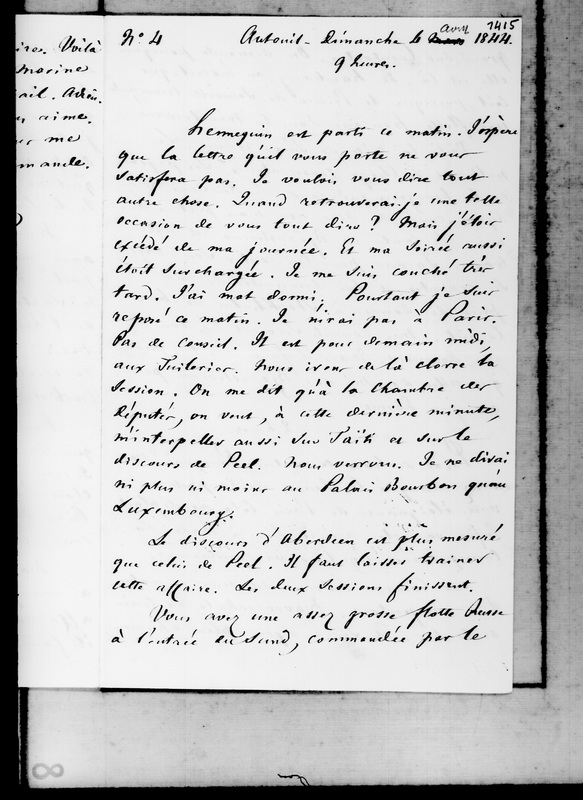 ires. Voilà
marine
ail. Adieu.
aime.
me
mande.
1415
N° 4 Auteuil - Dimanche 4 Avril 1844.
9 heures.
Hennequin est parti ce matin. J'espère
que la lettre qu'il vous porte ne vous
satisfera pas. Je voulois vous dire tout
autre chose. Quand retrouverai-je une telle
occasion de vous tout dire ? Mais j'étois
excédé de ma journée. Et ma soirée aussi
étoit surchargée. Je me suis couché très
tard. J'ai mal dormi. Pourtant je suis
reposé ce matin. Je n'irai pas à Paris.
Pas de Conseil. Il est pour demain midi,
aux Tuileries. Nous irons de là clorre la
session. On me dit qu'à la Chambre des
députés, on veut, à cette dernière minute,
m'interpeller aussi sur Taïti et sur le
discours de Peel. Nous verrons. Je ne dirai
ni plus ni moins au Palais Bourbon qu'au
Luxembourg.
Le discours d'Aberdeen est plus mesuré
que celui de Peel. Il faut laisser trainer
cette affaire. Les deux sessions finissent.
Vous avez une assez grosse flotte Russe
à l'entrée du Sund, commandée par le
8